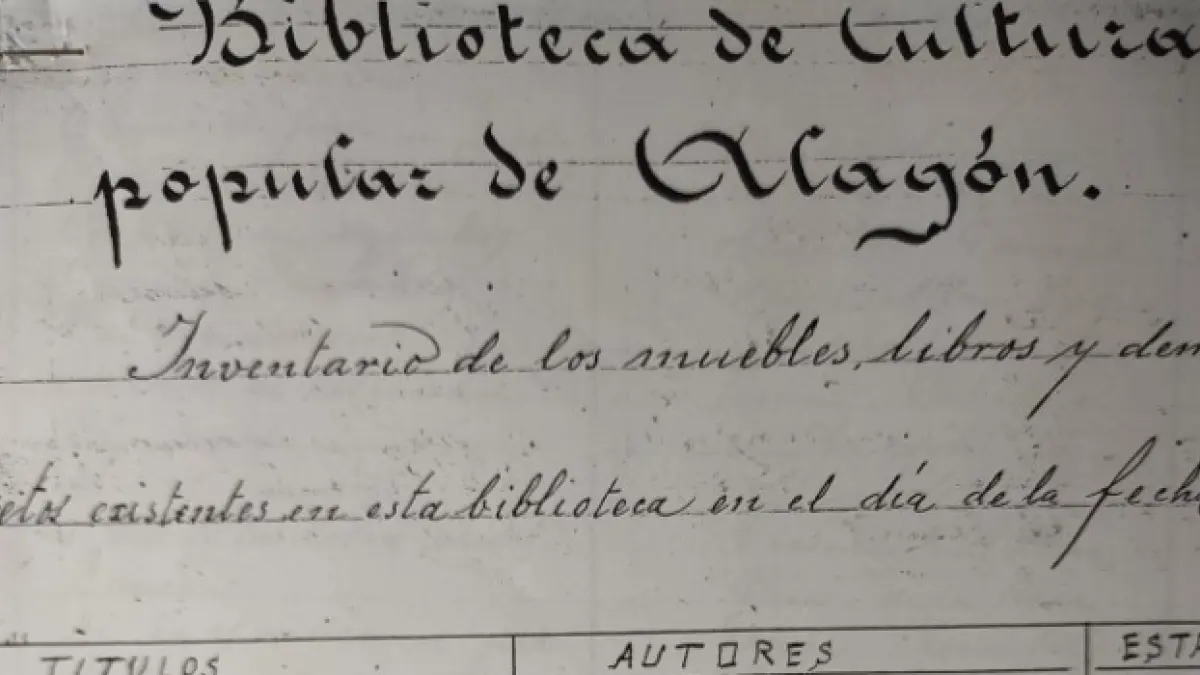 Biblioteca de Cultura
popular de Alagón.
Inventario de los muebles, libros y dem
etos existentes en esta biblioteca en el día de la fech
TITULOS AUTORES ESTA